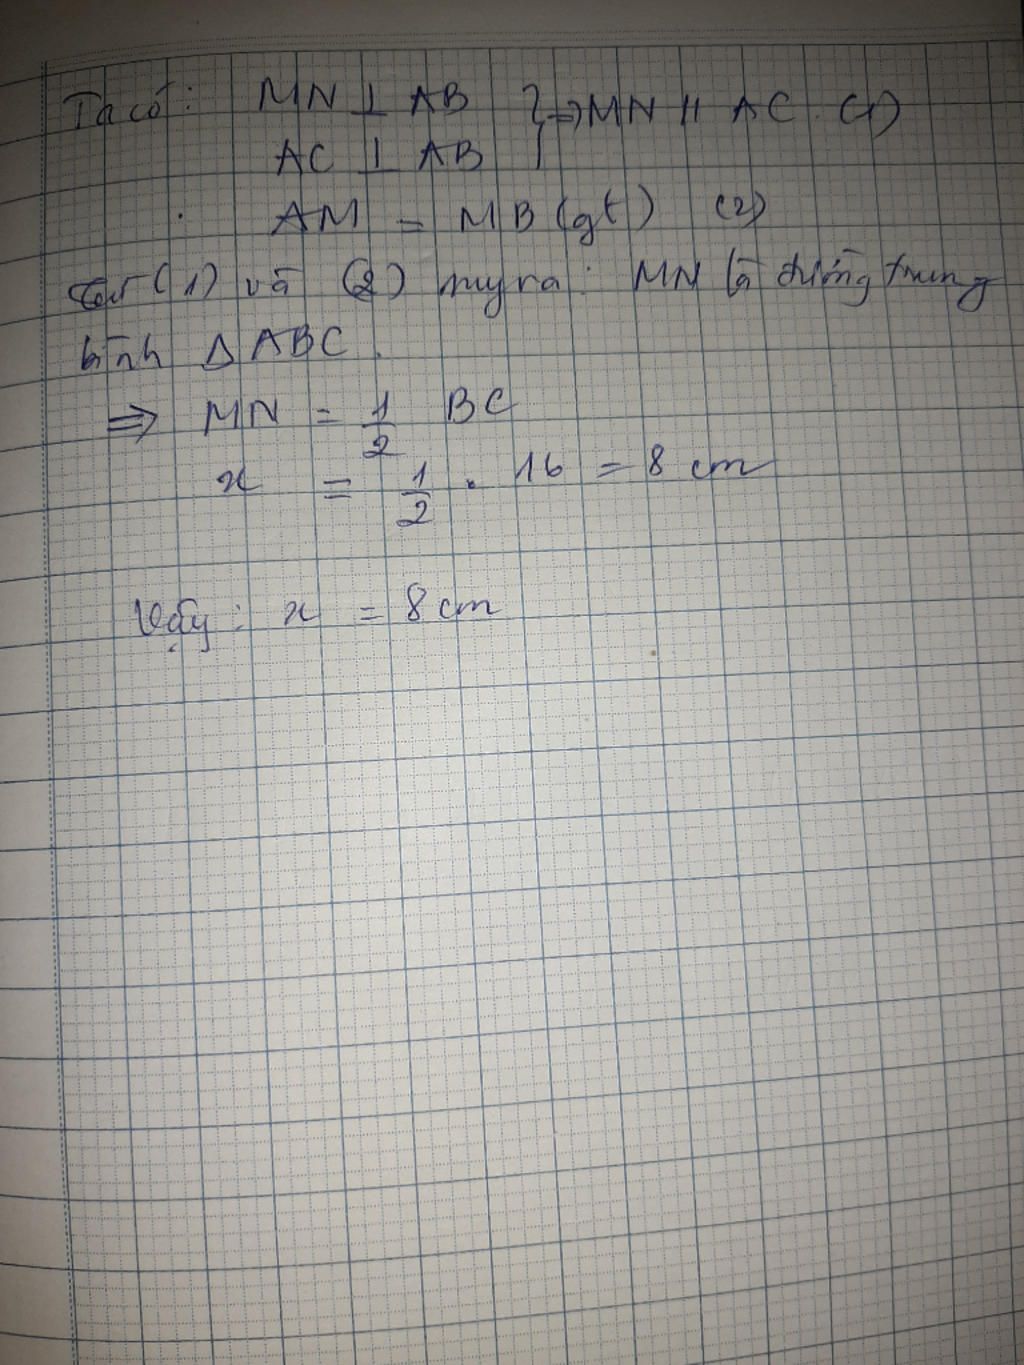 Ta có: MN ⊥ AB } => MN // AC (1)
AC ⊥ AB
AM = MB (gt) (2)
Từ (1) và (2) suy ra: MN là đường trung
bình Δ ABC.
=> MN = 1/2 BC
x = 1/2 . 16 = 8 cm
Vậy: x = 8 cm